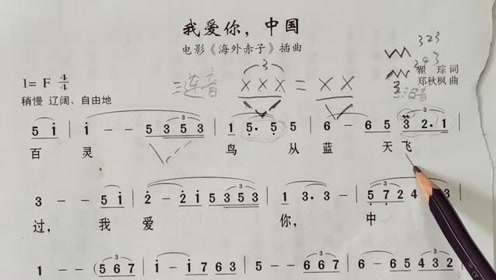 我爱你，中国
电影《海外赤子》插曲
323
343
1= F 4/4
三连音
3
X X X = X X
瞿 琮 词
郑秋枫 曲
稍慢 辽阔、自由地
5 i | i - - 5 3 5 3 | 1 5. 5 5 | 6 - 6 5 3 2. 1 |
百 灵 鸟 从 蓝 天 飞
3 - - 5 i | 2 - 2 i 2 3 5 3 | 1 - - - | 5 7 2 4
过， 我 爱 你， 中
1 - - (5 6 7 | i - - 5 6 7 | i - - 5 6 7 | 6 5 4 3 2